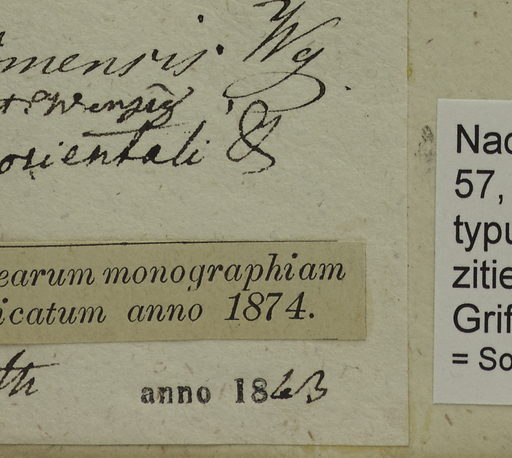 mensis. Wg.
Wenzig
orientali &
earum monographiam
icatum anno 1874.
th
anno 1863
Nac
57,
typu
zitie
Grif
= So